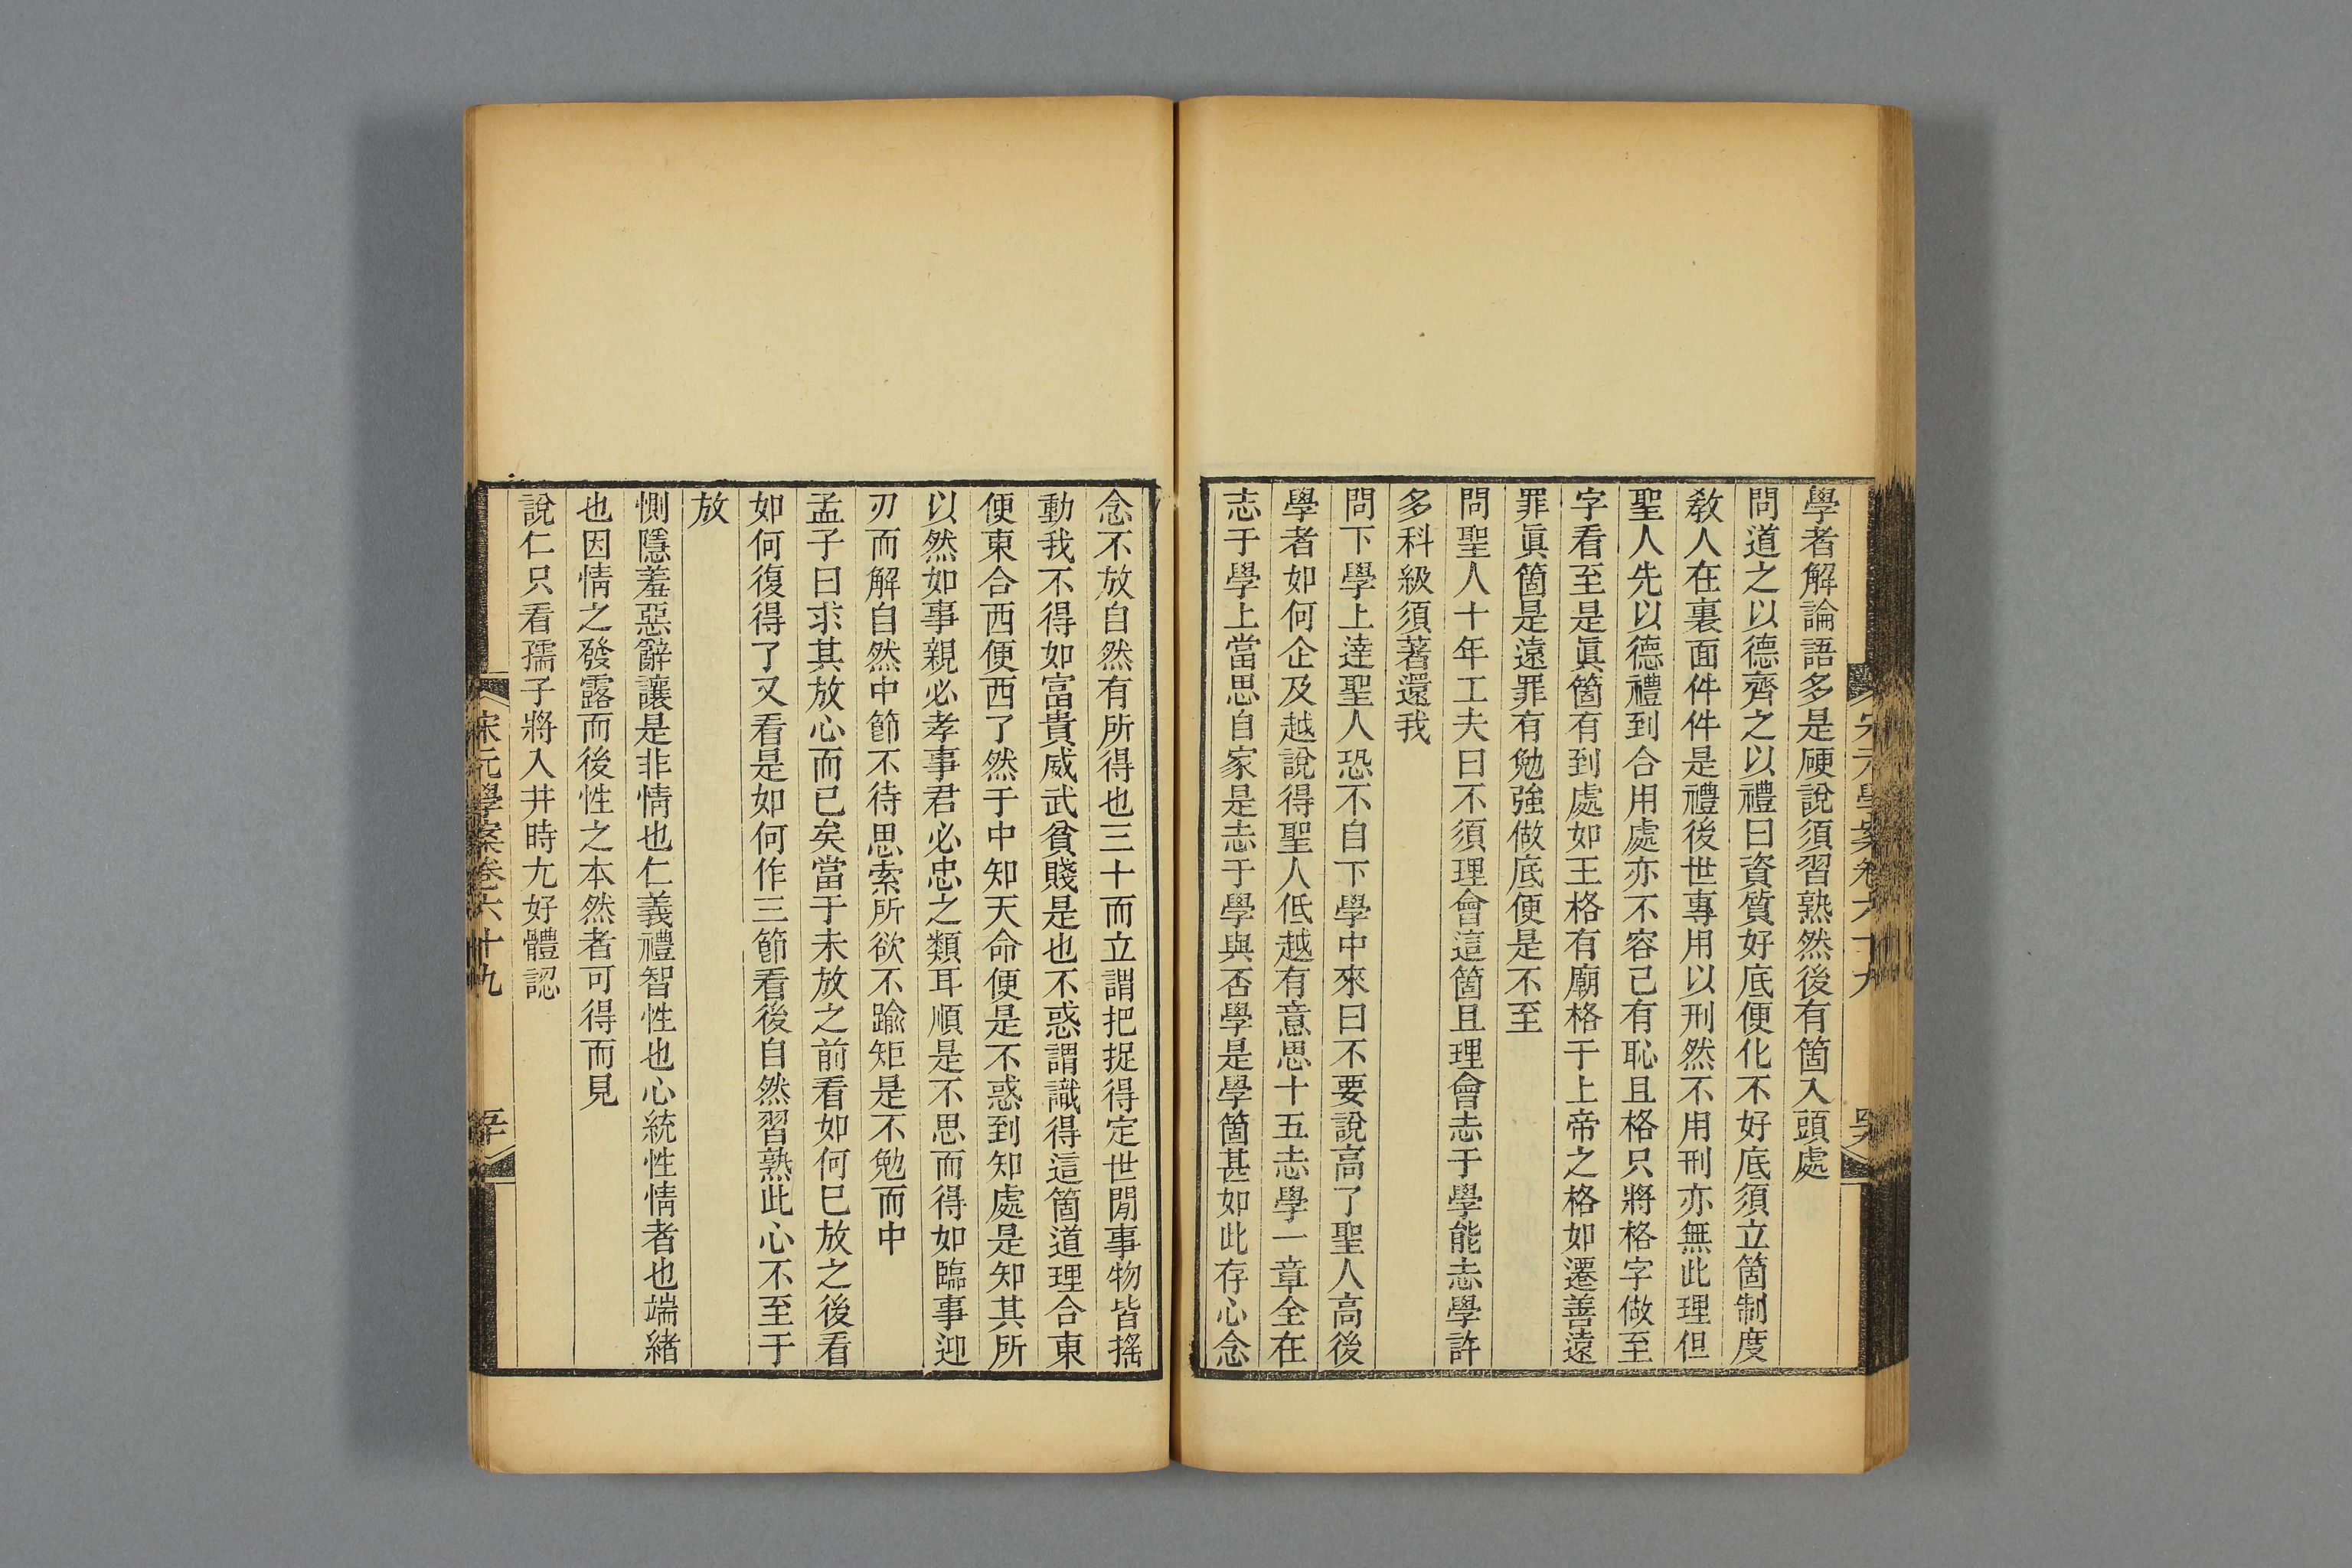 學者解論語多是硬說須習熟然後有箇入頭處
問道之以德齊之以禮曰資質好底便化不好底須立箇制度
敎人在裏面件件是禮後世專用以刑然不用刑亦無此理但
聖人先以德禮到合用處亦不容已有恥且格只將格字做至
字看至是眞箇有到處如王格有廟格于上帝之格如遷善遠
罪眞箇是遠罪有勉強做底便是不至
問聖人十年工夫曰不須理會這箇且理會志于學能志學許
多科級須著還我
問下學上達聖人恐不自下學中來曰不要說高了聖人高後
學者如何企及越說得聖人低越有意思十五志學一章全在
志于學上當思自家是志于學與否學是學箇甚如此存心念
念不放自然有所得也三十而立謂把捉得定世閒事物皆搖
動我不得如富貴威武貧賤是也不惑謂識得這箇道理合東
便東合西便西了然于中知天命便是不惑到知處是知其所
以然如事親必孝事君必忠之類耳順是不思而得如臨事迎
刃而解自然中節不待思索所欲不踰矩是不勉而中
孟子曰求其放心而已矣當于未放之前看如何已放之後看
如何復得了又看是如何作三節看後自然習熟此心不至于
放
惻隱羞惡辭讓是非情也仁義禮智性也心統性情者也端緒
也因情之發露而後性之本然者可得而見
說仁只看孺子將入井時尤好體認
宋元學案卷六十九